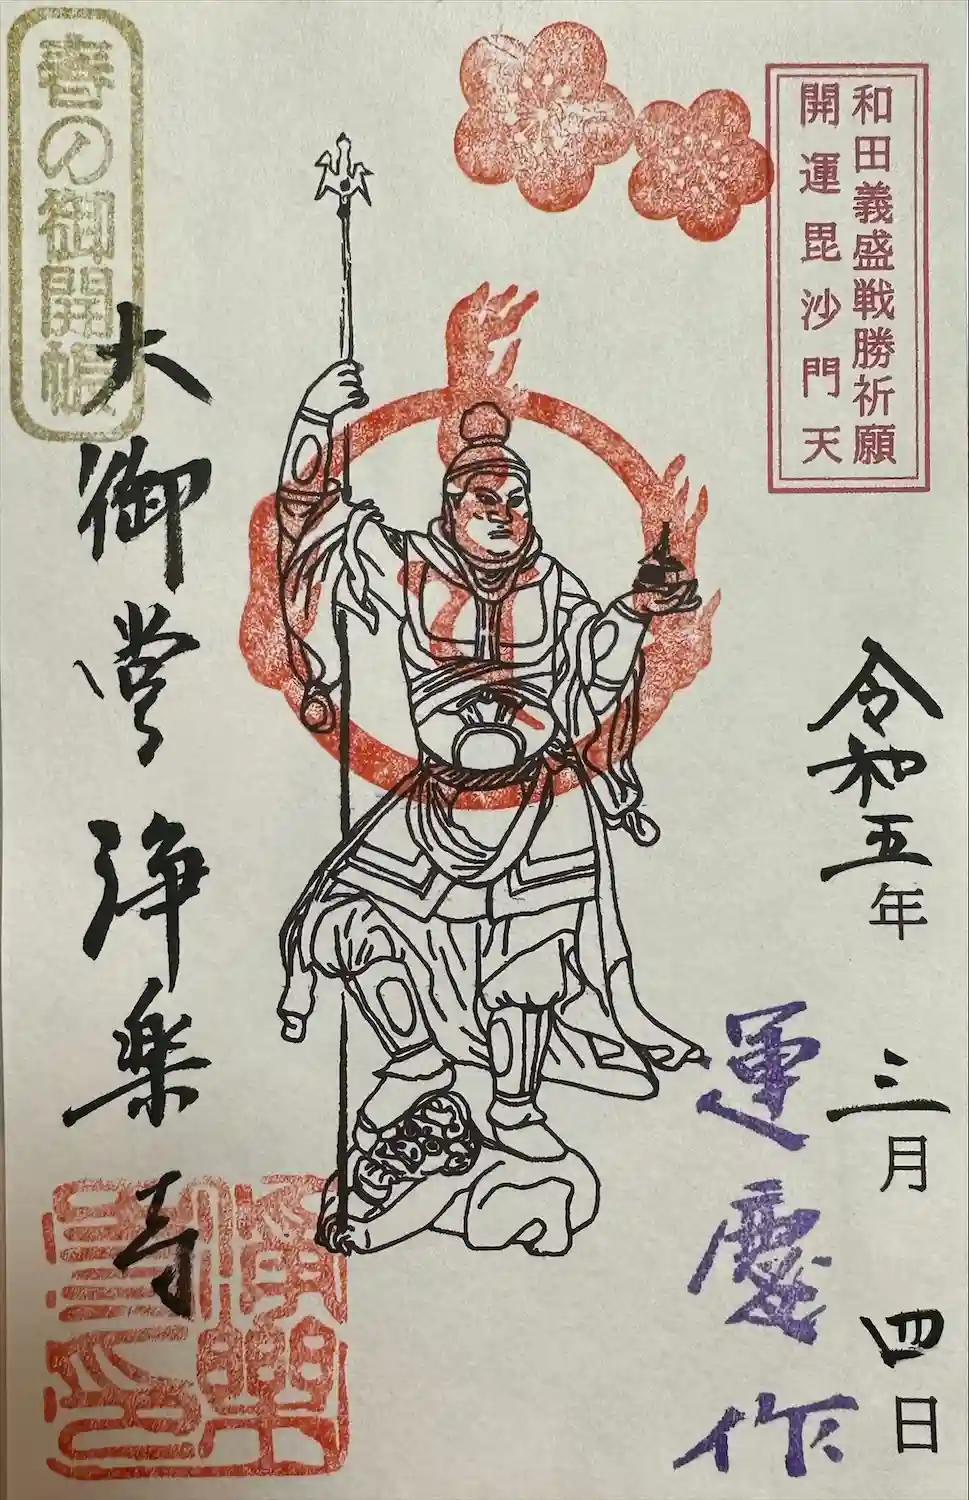 和田義盛戦勝祈願
開運毘沙門天
令和五年 三月 四日
運慶作
春の御開帳
大御堂 浄楽寺